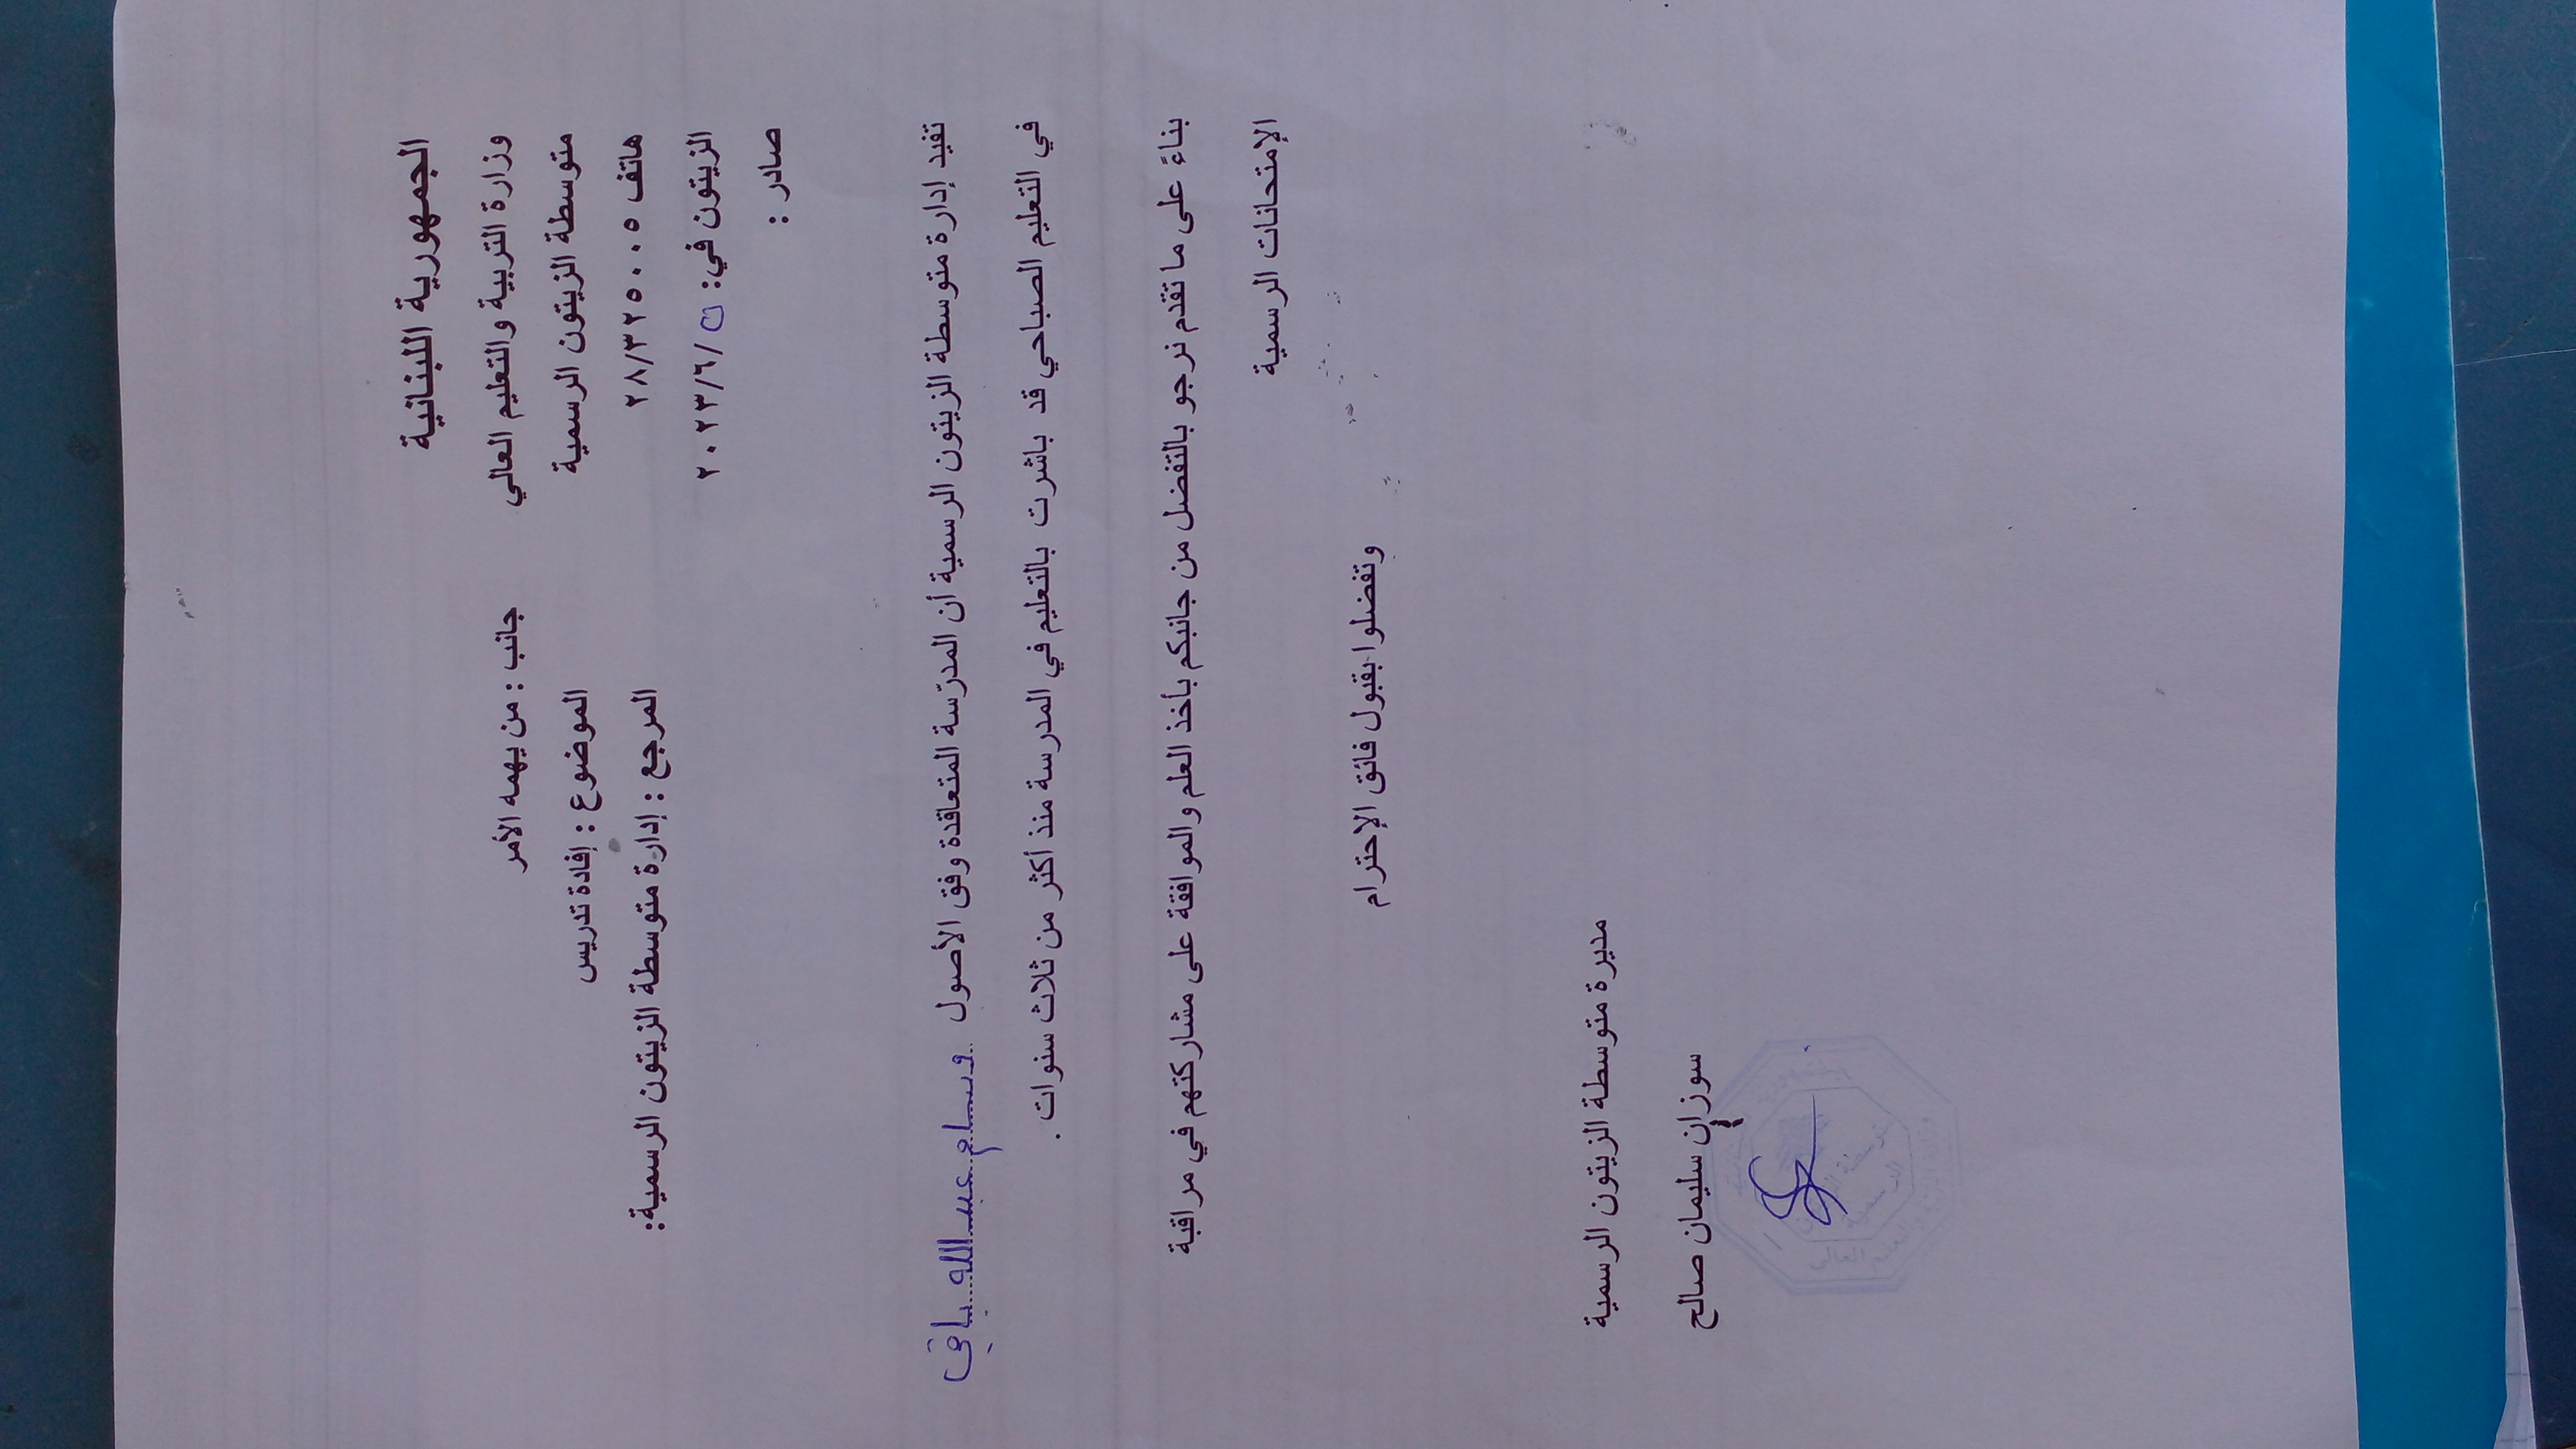 الجمهورية اللبنانية
وزارة التربية والتعليم العالي
جانب : من يهمه الأمر
متوسطة الزيتون الرسمية
الموضوع : إفادة تدريس
هاتف ٢٨/٣٢٥٠٠٥
المرجع : إدارة متوسطة الزيتون الرسمية:
الزيتون في: ٥/٦/٢٠٢٣
صادر :
تفيد إدارة متوسطة الزيتون الرسمية أن المدرّسة المتعاقدة وفق الأصول وسام عبد الله ياقي
في التعليم الصباحي قد باشرت بالتعليم في المدرسة منذ أكثر من ثلاث سنوات .
بناءً على ما تقدم نرجو بالتفضل من جانبكم بأخذ العلم والموافقة على مشاركتهم في مراقبة
الإمتحانات الرسمية
وتفضلوا بقبول فائق الإحترام
مديرة متوسطة الزيتون الرسمية
سوزان سليمان صالح